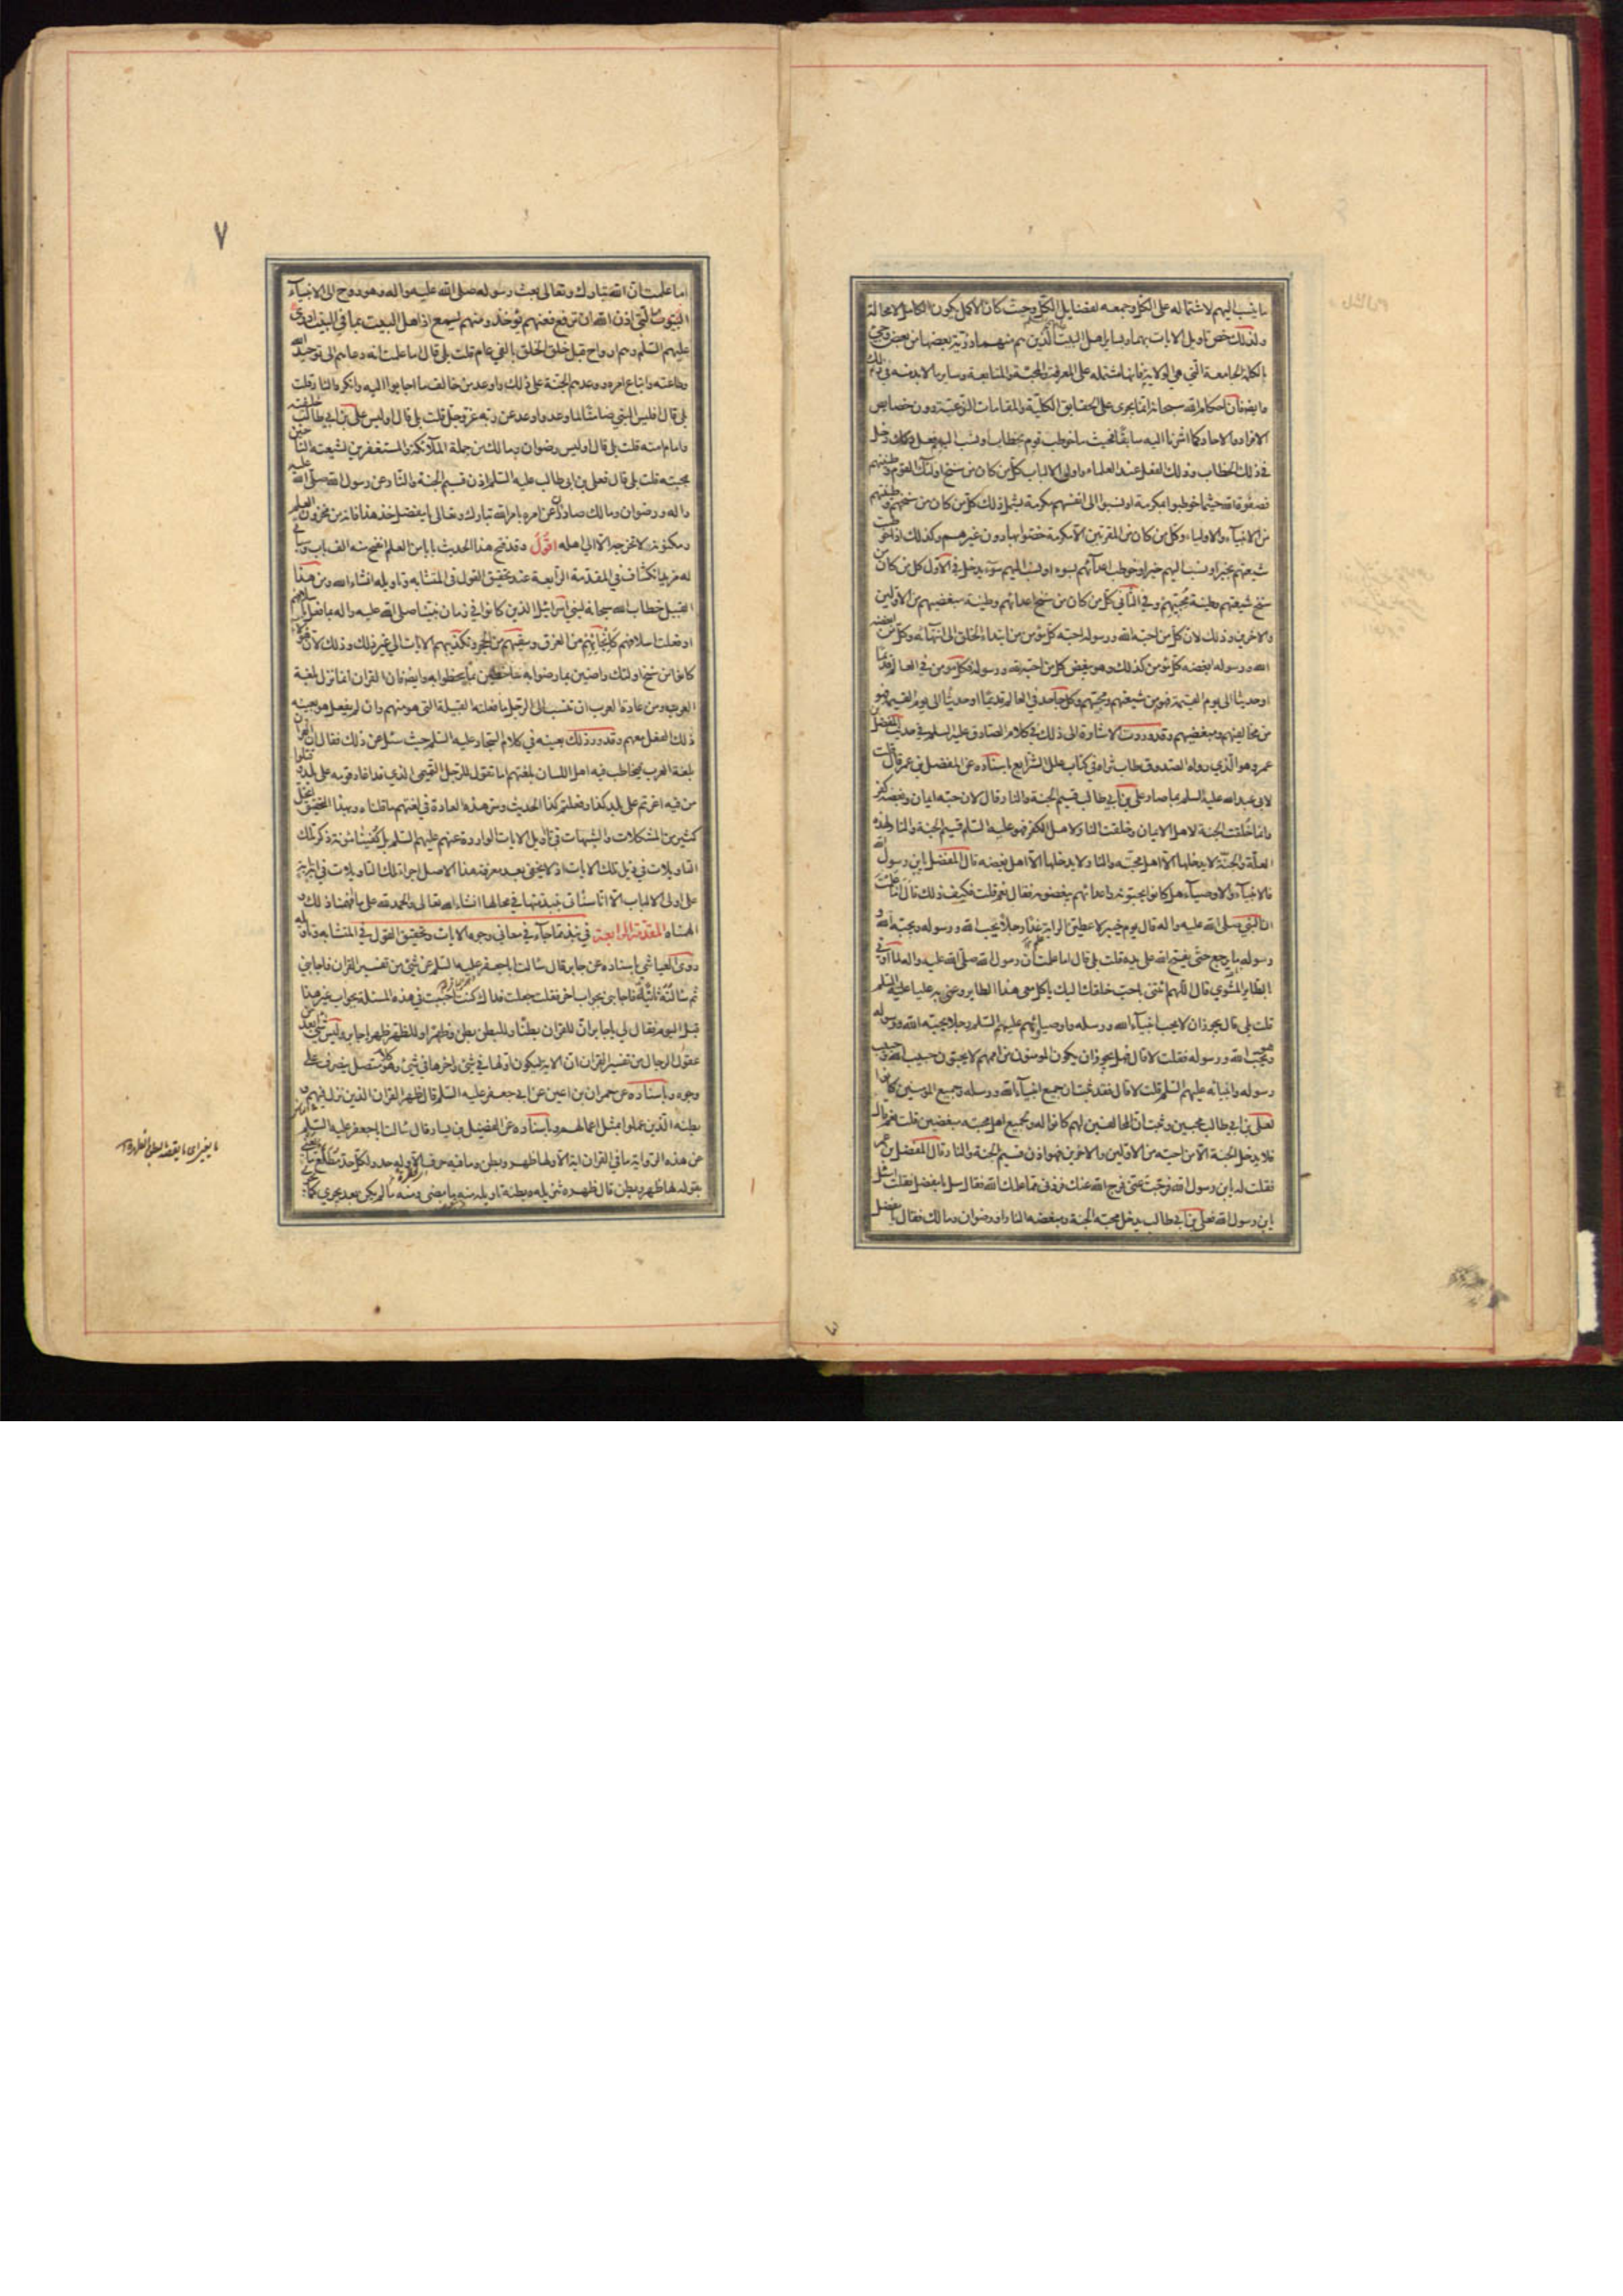 ما ينسب اليهم لاشتماله على الكل وجمعه لفضايل الكل وحيث كان الاكمل يكون الكامل لا محالة
ولذلك خص تاويل الايات بهما وبساير اهل البيت الذين هم منهما ذرية بعضها من بعض وجئ
بالكلمة الجامعة التي هي الولاية فانها مشتملة على المعرفة والمحبة والمتابعة وساير ما لا بد منه في ذلك
وايضا فان احكام الله سبحانه انما يجري على الحقايق الكلية والمقامات النوعية دون خصايص
الافراد والاحاد كما اشرنا اليه سابقا فحيث ما خوطب قوم بخطاب او نسب اليهم فعل فكان دخل
في ذلك الخطاب وذلك الفعل عند العلماء واولي الالباب كل من كان من سنخ اولئك القوم وطينتهم
فصفوة الله حيثما خوطبوا بمكرمة او نسبوا الى انفسهم مكرمة يشمل ذلك كل من كان من سنخهم وطينتهم
من الانبياء والاولياء وكل من كان من المقربين الا مكرمة خصوا بها دون غيرهم وكذلك اذا خوطب
شيعتهم بخير او نسب اليهم خير او خوطب اعداؤهم بسوء او نسب اليهم سوء يدخل في الاول كل من كان من
سنخ شيعتهم وطينة محبيهم وفي الثاني كل من كان من سنخ اعدائهم وطينة مبغضيهم من الاولين
والاخرين وذلك لان كل من احبه الله ورسوله احبه كل مؤمن من ابتداء الخلق الى انتهائه وكل من ابغضه
الله ورسوله ابغضه كل مؤمن كذلك وهو يبغض كل من احبه الله ورسوله فكل مؤمن في العالم قديما
او حديثا الى يوم القيمة فهو من شيعتهم ومحبيهم وكل جاحد في العالم قديما او حديثا الى يوم القيمة فهو
من مخالفيهم ومبغضيهم وقد وردت الاشارة الى ذلك في كلام الصادق عليه السلم في حديث المفضل بن
عمر وهو الذي رواه الصدوق طاب ثراه في كتاب علل الشرايع باسناده عن المفضل بن عمر قال قلت
لابي عبد الله عليه السلم بما صار علي بن ابي طالب قسيم الجنة والنار قال لان حبه ايمان وبغضه كفر
وانما خلقت الجنة لاهل الايمان وخلقت النار لاهل الكفر فهو عليه السلم قسيم الجنة والنار لهذه
العلة والجنة لا يدخلها الا اهل محبته والنار لا يدخلها الا اهل بغضه قال المفضل يابن رسول الله
فالانبياء والاوصياء هل كانوا يحبونه واعداؤهم يبغضونه فقال نعم قلت فكيف ذلك قال اما علمت
ان النبي صلى الله عليه واله قال يوم خيبر لاعطين الراية غدا رجلا يحب الله ورسوله ويحبه الله و
رسوله ما يرجع حتى يفتح الله على يده قلت بلى قال اما علمت ان رسول الله صلى الله عليه واله لما اوتي
بالطاير المشوي قال اللهم ائتني باحب خلقك اليك ياكل معي هذا الطاير وعنى به عليا عليه السلم
قلت بلى قال يجوز ان لا يحب انبياء الله ورسله واوصياؤهم عليهم السلم رجلا يحبه الله ورسوله
ويحب الله ورسوله فقلت لا قال فهل يجوز ان يكون المومنون من اممهم لا يحبون حبيب الله وحبيب
رسوله وانبيائه عليهم السلم قلت لا قال فقد ثبت ان جميع انبياء الله ورسله وجميع المومنين كانوا
لعلي بن ابي طالب محبين وثبت ان المخالفين لهم كانوا له ولجميع اهل محبته مبغضين قلت نعم قال
فلا يدخل الجنة الا من احبه من الاولين والاخرين فهو اذن قسيم الجنة والنار قال المفضل بن عمر
فقلت له يابن رسول الله فرجت عني فرج الله عنك فزدني مما علمك الله فقال سل يا مفضل فقلت اسئل
يابن رسول الله فعلي بن ابي طالب يدخل محبه الجنة ومبغضه النار او رضوان ومالك فقال يا مفضل
٧
اما علمت ان الله تبارك وتعالى بعث رسوله صلى الله عليه واله وهو روح الى الانبياء
عليهم السلم وهم ارواح قبل خلق الخلق بالفي عام قلت بلى قال اما علمت انه دعاهم الى توحيد الله
وطاعته واتباع امره ووعدهم الجنة على ذلك واوعد من خالف ما اجابوا اليه وانكره النار قلت
بلى قال افليس النبي ضامنا لما وعد واوعد عن ربه عز وجل قلت بلى قال اوليس علي بن ابي طالب خليفته
وامام امته قلت بلى قال اوليس رضوان ومالك من جملة الملائكة والمستغفرين لشيعته الناجين
بمحبته قلت بلى قال فعلي بن ابي طالب عليه السلم اذن قسيم الجنة والنار عن رسول الله صلى الله عليه
واله ورضوان ومالك صادران عن امره بامر الله تبارك وتعالى يا مفضل خذ هذا فانه من مخزون العلم
ومكنونه لا تخرجه الا الى اهله اقول وقد فتح هذا الحديث بابا من العلم انفتح منه الف باب وسياتي
له مزيد انكشاف في المقدمة الرابعة عند تحقيق القول في المتشابه وتاويله انشاء الله ومن هذا
القبيل خطاب الله سبحانه لبني اسرائيل الذين كانوا في زمان نبينا صلى الله عليه واله بما فعل باسلافهم
او فعلت اسلافهم كانجائهم من الغرق وسقيهم من الحجر وتكذيبهم الايات الى غير ذلك وذلك لان هؤلاء
كانوا من سنخ اولئك راضين بما رضوا به ساخطين بما سخطوا به وايضا فان القران انما نزل بلغة
العرب ومن عادة العرب ان تنسب الى الرجل ما فعلته القبيلة التي هو منهم وان لم يفعل هو بعينه
ذلك الفعل معهم وقد ورد ذلك بعينه في كلام السجاد عليه السلم حيث سئل عن ذلك فقال ان القران
بلغة العرب فيخاطب فيه اهل اللسان بلغتهم اما تقول للرجل التميمي الذي قد اغار قومه على بلد وقتلوا
من فيه اغرتم على بلد كذا وفعلتم كذا الحديث وسر هذه العادة في لغتهم ما قلناه وبهذا التحقيق انحل
كثير من المشكلات والشبهات في تاويل الايات الواردة عنهم عليهم السلم بل كفينا مؤنة ذكر تلك
التاويلات في ذيل تلك الايات اذ لا يخفى بعد معرفة هذا الاصل اجراء تلك التاويلات في اية اية
على اولي الالباب الا انا سناتي بنبذ منها في محالها انشاء الله تعالى والحمد لله على ما افهمنا ذلك و
الهمناه المقدمة الرابعة في نبذ مما جاء في معاني وجوه الايات وتحقيق القول في المتشابه وتاويله
روى العياشي باسناده عن جابر قال سالت ابا جعفر عليه السلم عن شئ من تفسير القران فاجابني
ثم سالته ثانية فاجابني بجواب اخر فقلت جعلت فداك كنت اجبت في هذه المسئلة بجواب غير هذا
قبل اليوم فقال لي يا جابر ان للقران بطنا وللبطن بطن وظهرا وللظهر ظهر يا جابر وليس شئ ابعد من
عقول الرجال من تفسير القران ان الاية ليكون اولها في شئ واخرها في شئ وهو كلام متصل يتصرف على
وجوه وباسناده عن حمران بن اعين عن ابي جعفر عليه السلم قال ظهر القران الذين نزل فيهم و
بطنه الذين عملوا بمثل اعمالهم وباسناده عن الفضيل بن يسار قال سالت ابا جعفر عليه السلم
عن هذه الرواية ما في القران اية الا ولها ظهر وبطن وما فيه حرف الا وله حد ولكل حد مطلع ما يعني
بقوله لها ظهر وبطن قال ظهره تنزيله وبطنه تاويله منه ما مضى ومنه ما لم يكن بعد يجري كما